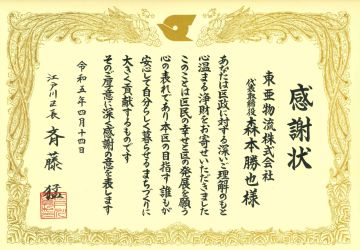 感謝状
東亜物流株式会社
代表取締役 森本勝也様
あなたは区政に対する深いご理解のもと
心温まる浄財をお寄せいただきました
このことは区民の幸せと区の発展を願う
心の表れであり本区の目指す誰もが
安心して自分らしく暮らせるまちづくりに
大きく貢献するものです
そのご厚意に深く感謝の意を表します
令和五年四月十四日
江戸川区長 斉藤 猛